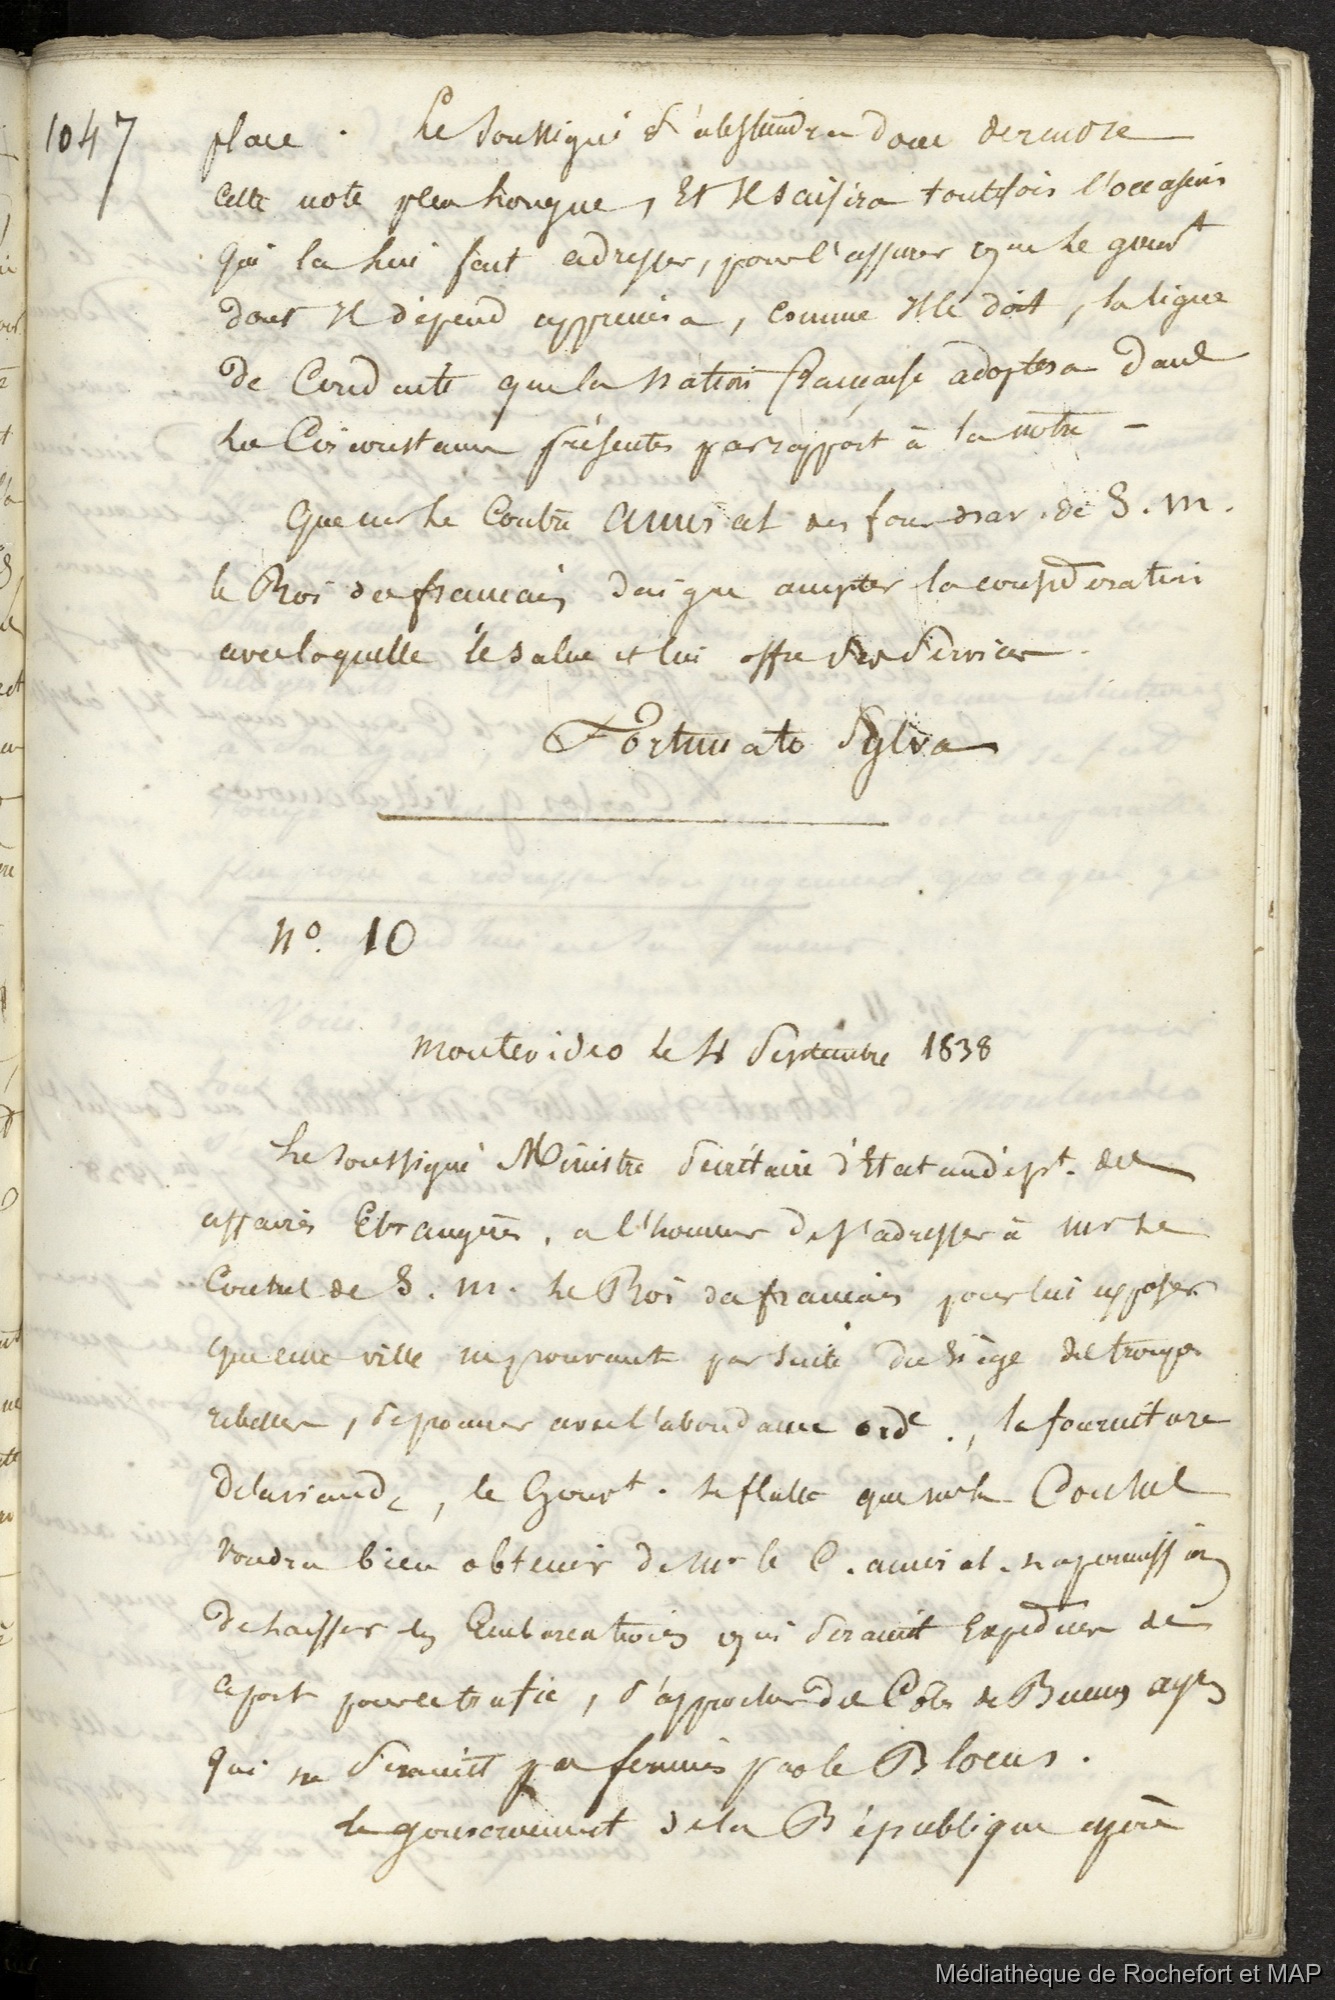 1047
place . Le Soussigné s'abstiendra donc de rendre
cette note plus longue, Et Il saisira toutefois l'occasion
qui la lui fait adresser, pour l'assurer que le gouvt
dont Il dépend appreciera, comme Il le doit, la ligne
de Conduite que la Nation française adoptera dans
les Circonstances présentes par rapport à la notre -
Que mr le Contre Amiral des forces nav. de S. M.
le Roi des français daigne accepter la considération
avec laquelle le salue et lui offre ses Services.
Fortunato Sylva
No. 10
Montevideo le 4 Septembre 1838
Le Soussigné Ministre Secrétaire d'Etat au dépt. des
affaires Etrangères, a l'honneur de s'adresser à mr le
Consul de S. M. le Roi des français pour lui exposer
que cette ville ne pouvant par suite du Siège des troupes
rebelles, se procurer avec l'abondance ordre., la fourniture
de la viande, le Gouvt. se flatte que mr le Consul
voudra bien obtenir de Mr le C. amiral. sa permission
de laisser les Embarcations qui seraient Expédiées de
ce port pour ce trafic, s'approcher des Côtes de Buenos ayres
qui ne seraient pas fermées par le Blocus.
Le gouvernement de la République espère
Médiathèque de Rochefort et MAP